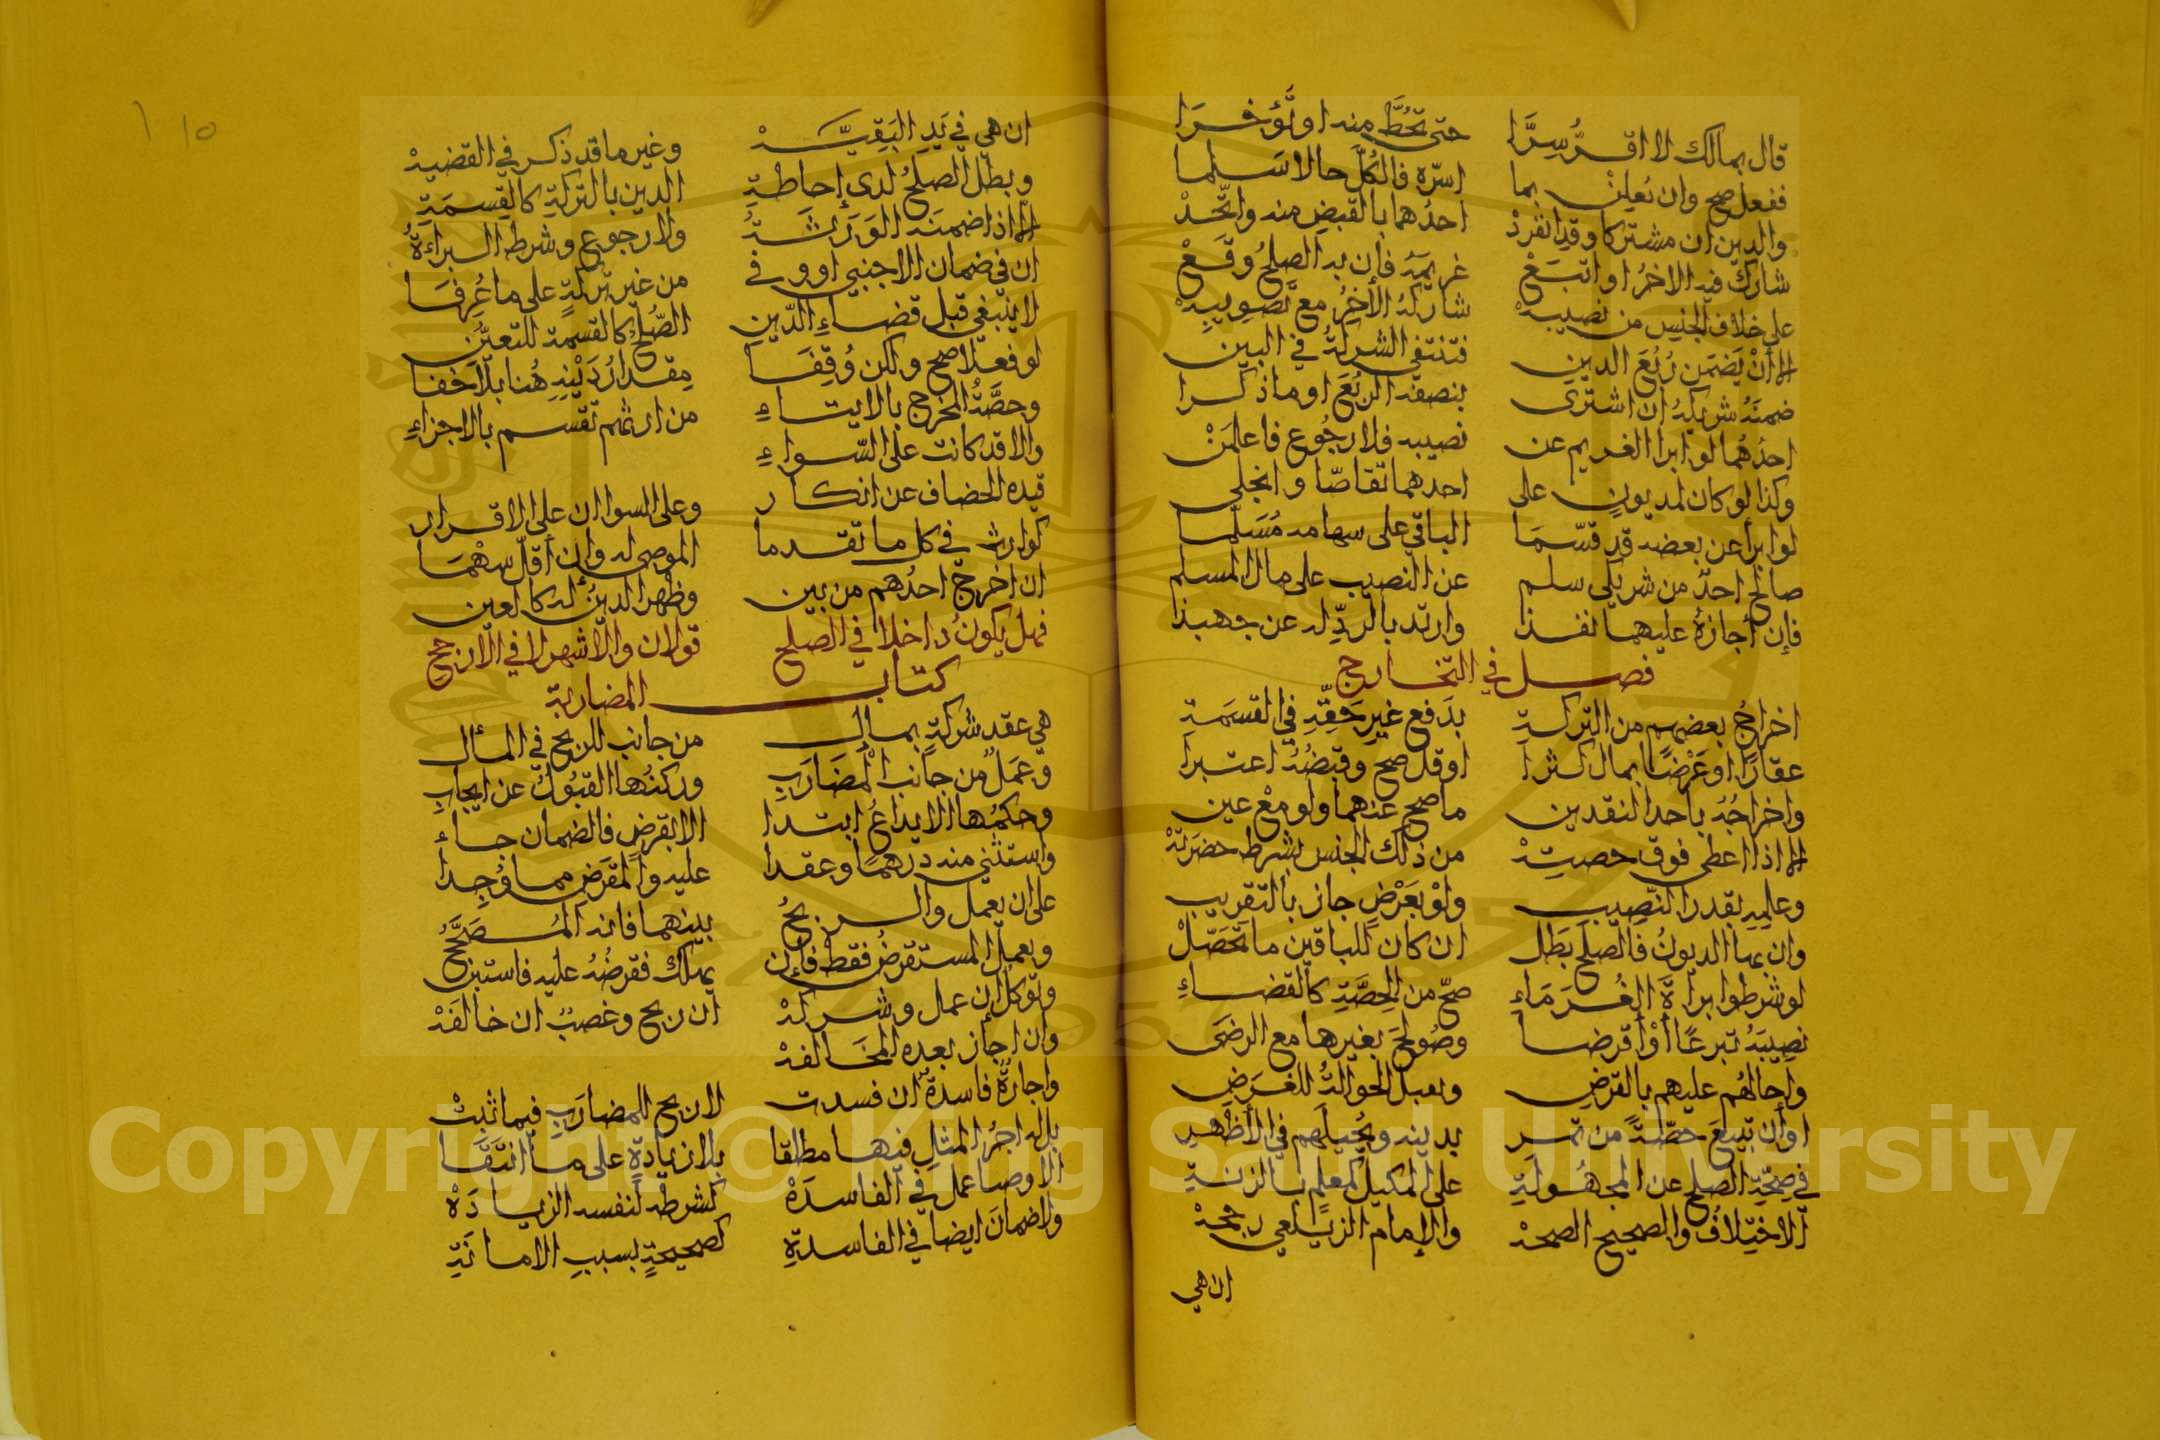 قال بمالك لا اقرُّ سِرَّا حتى تحُطَّ منه او تؤخرَا
ففعل صح وان يُعلِنْ بما اسرّه فالكلَّ حالا سَلما
والدين ان مشتركا وقد انفردْ احدُهما بالقبضِ منه واتّحدْ
شارك فيه الاخرُ او اتبَعْ غريمَهُ فان بدا الصلحُ وقَعْ
على خلاف الجنس من نصيبهْ شاركهُ الأخرُ مع تصويبِهْ
الا أنْ يَضمَن رُبُعَ الدين فتنتفى الشركةُ في البين
ضمنَهُ شريكهُ ان اشترى بنصفه الربُعَ او ما ذكرا
احدُهُما لو ابرا الغريم عن نصيبه فلا رجُوع فاعلمَنْ
وكذا لو كان لمديونٍ على احدهما تقاصّا وانجلى
لو ابرأ عن بعضه قد قسّمَا الباقي على سهامه مُسَلّما
صالح احدٌ من شريكى سلم عن النصيب على مال المسلم
فإن أجازهُ عليهما نفذا وارتد بالردِّ له عن جهبذا
فصل في التخارج
اخراجُ بعضهم من التركةِ بدَفع غيرِ حَقّهِ في القسمَةِ
عقارًا او عَرْضًا بمال كثرا او قل صح وقبضُهُ اعتبرا
واخراجُهُ باحد النقدين ما صح عنهما ولو مْع عين
الا اذا اعطى فوق حصتِهْ من ذلك الجنس بشرط حضرَتهْ
وعلمِهِ بقدر النّصِيبِ ولوْ بعَرْضٍ جاز بالتقريب
وان عما الديونُ فالصلحَ بَطل ان كان للباقين ما تحَصّلْ
لو شرطوا براْةَ الغُرَمَاءِ صحّ من الحِصَّةِ كالقضاءِ
نصِيبَهُ تبرعًا أوْ أقرضا وصُولحَ بغيرها مع الرضَى
واحالهُم عليهم بالقرضِ ونقبل الحوالةُ للغرَضِ
او أن تبيعَ حصّةً من تمر بدينه ويُحيلَهم في الأظْهرِ
في صِحّةِ الصلح عن المجهُولةِ على المكيل
الاختِلافُ والصحيح الصحهْ والإمام الزيلعي رجحهْ
ان هي
ان هي في يَدِ البَقِيَّهْ وغير ما قد ذكر في القضيهْ
وبطل الصلحُ لدى إحاطةِ الدين بالتركةِ كالقِسمَةِ
الا اذا ضمنَه الوَرَثَةُ ولا رجوع وشرطه البراءةُ
ان في ضمان الاجنبي او وفى من غير تركةٍ على ما عُرِفَا
لا ينبغي قبل قضاءِ الدّينِ الصّلحُ كالقسمة للتعيُّنِ
لو فعلا صح ولكن وُقِفَا مِقدارُ دَيْنِهِ هُنا بلا خفا
وحصَّةُ المخرج بالايتاءِ من ارثهم تقسم بالاجزاءِ
والا قد كانت على السّواءِ
قيده الخصاف عن انكار وعلى السوا ان على الاقرار
كوارث في كل ما تقدما الموصى له وان أقلّ سهْمَا
ان اخرجَ احدُهم من بين وظهر الدينُ له كالعين
فهل يكونُ داخلا في الصلح قولان والاشهر لا في الارجحِ
كتاب المضاربة
هي عقد شركةٍ بمال من جانب للربح في المأل
وعَمَلُ من جانب المُضَارَبِ وركنُها القبُولُ عن ايجابِ
وحكمُها الايداعُ ابتدا الا بقرضٍ فالضمان جاءَ
واستثنى منه درهمًا وعقدا عليه والمقرَضِ مما وُجِدا
على ان يعمل والربحُ بينهما فانه المُصَحَّحُ
وبعمل المستقرضُ فقطْ فإن يهلك فقرضُهُ عليه فاستبن
وتوكل إن عمل وشركهْ ان ربح وغصبٌ ان خالفَهْ
وان اجاز بعده المخَالفهْ
واجارةٌ فاسدةٌ ان فسدت لا ربح للمضارَبِ فيما ثبتْ
بل له اجرُ المثلِ فيها مطلقا بلا زيادةٍ على ما اتّفَقَا
الا وصيا عمل في الفاسدَهْ كشرطه لنفسه الزيادَهْ
ولا ضمانَ ايضا في الفاسدةِ كصحيحةٍ بسببِ الامانَةِ
١٥ ١
Copyright © King Saud University
1957